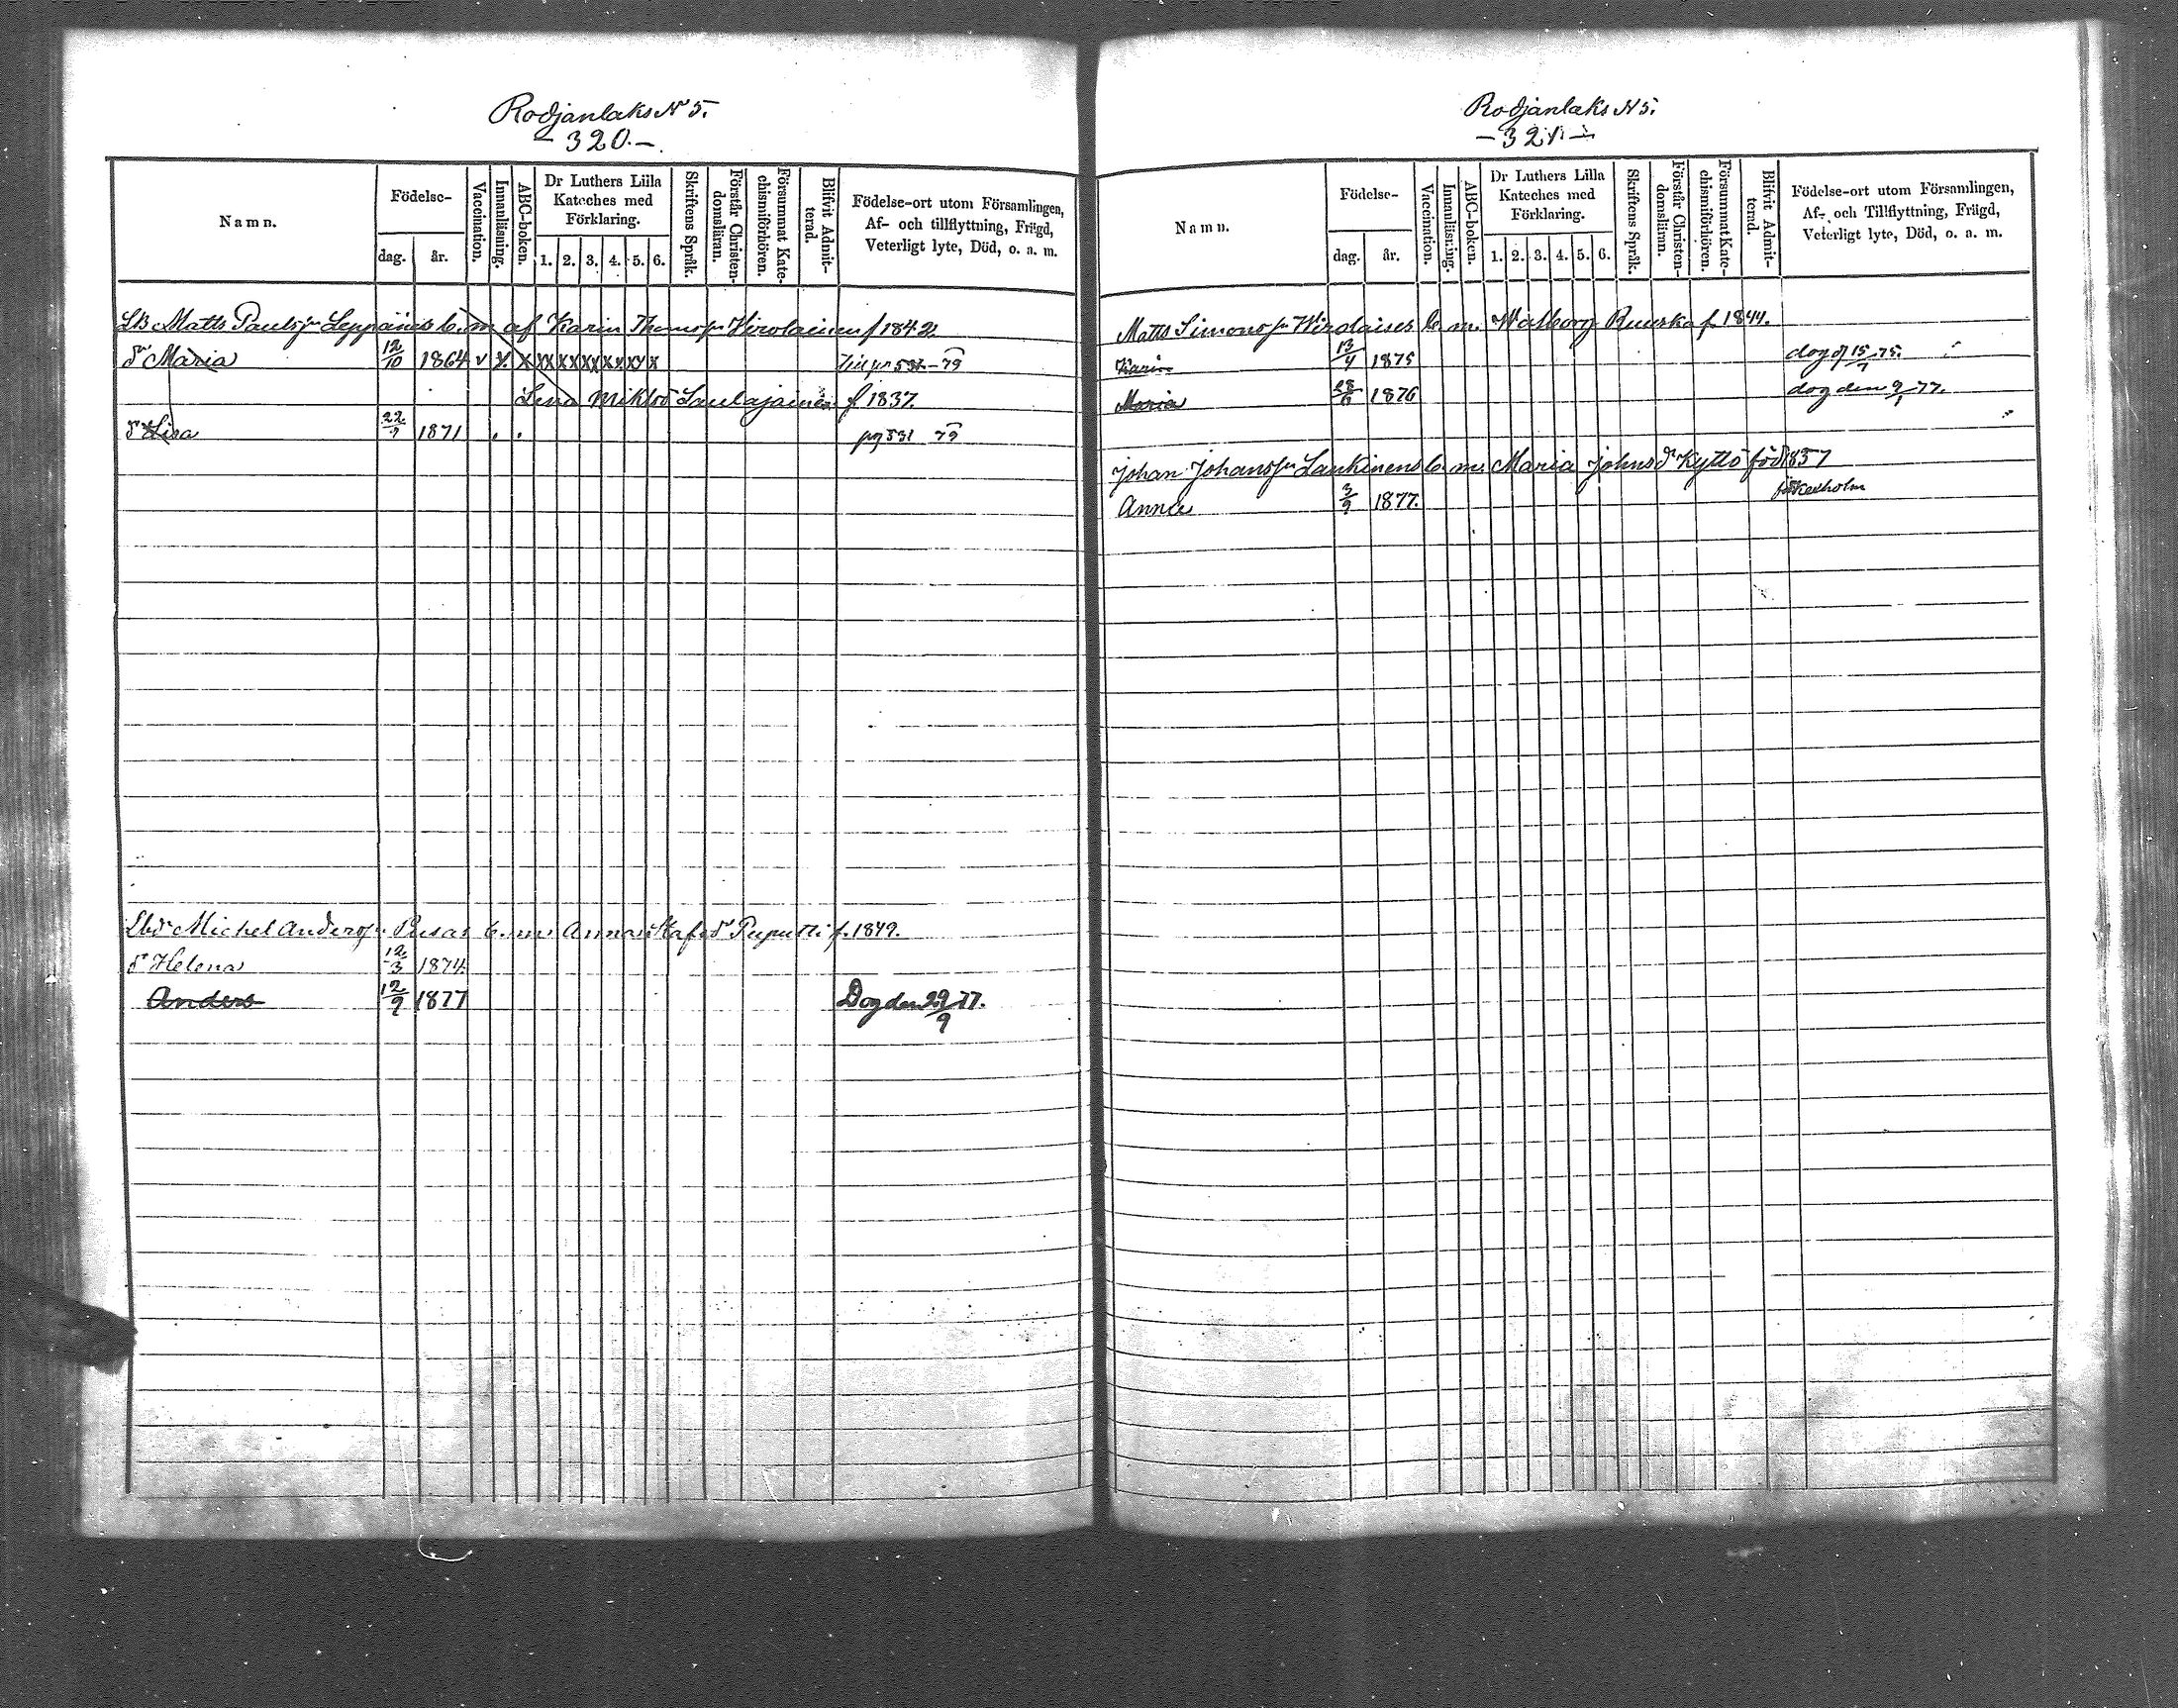 Rodjanlaks N 5.
- 320. -
Namn.
Födelse-
dag.
år.
Vaccination.
Innanläsning.
ABC-boken.
Dr Luthers Lilla Kateches med Förklaring.
1. 2. 3. 4. 5. 6.
Skriftens Språk.
Förstår Christen-domsläran.
Försummat Kate-chismiförhören.
Blifvit Admit-terad.
Födelse-ort utom Församlingen,
Af- och tillflyttning, Frägd,
Veterligt lyte, Död, o. a. m.
Matts Pauls Leppänens b. m. af Karin Thoms Hirolainen f 1842
dr Maria 12/10 1864 v x x x x x x x x 79
Lena Laulajainen f 1837.
dr Lisa 22/9 1871 . . pg 531 79
Michel Anders Rusas b. m. Anna Puputti f. 1849.
dr Helena 12/3 1874
Anders 12/9 1877 Dog den 29/9 77.
Rodjanlaks N 5.
- 321 -
Namn.
Födelse-
dag.
år.
Vaccination.
Innanläsning.
ABC-boken.
Dr Luthers Lilla Kateches med Förklaring.
1. 2. 3. 4. 5. 6.
Skriftens Språk.
Förstår Christen-domsläran.
Försummat Kate-chismiförhören.
Blifvit Admit-terad.
Födelse-ort utom Församlingen,
Af- och Tillflyttning, Frägd,
Veterligt lyte, Död, o. a. m.
Matts Simons b. m. Walborg Ruuska f. 1844.
Karin 13/4 1875 dog 15 75.
Maria 28 1876 dog den 9 77.
Johan Johans Lankinens b. m. Maria Johns dr Kyttö född 1837
Anna 3/9 1877. Kexholm